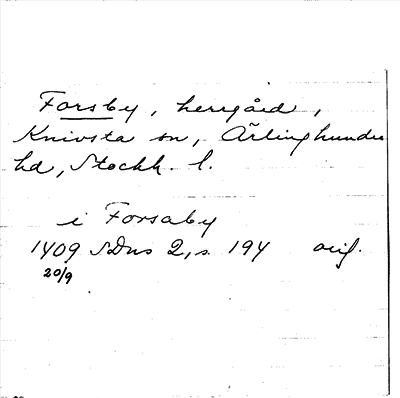 Forsby, herrgård,
Knivsta sn, Ärlinghundra
hd, Stockh. l.
i Forsaby
1409 SDns 2, s. 194 orig.
20/9